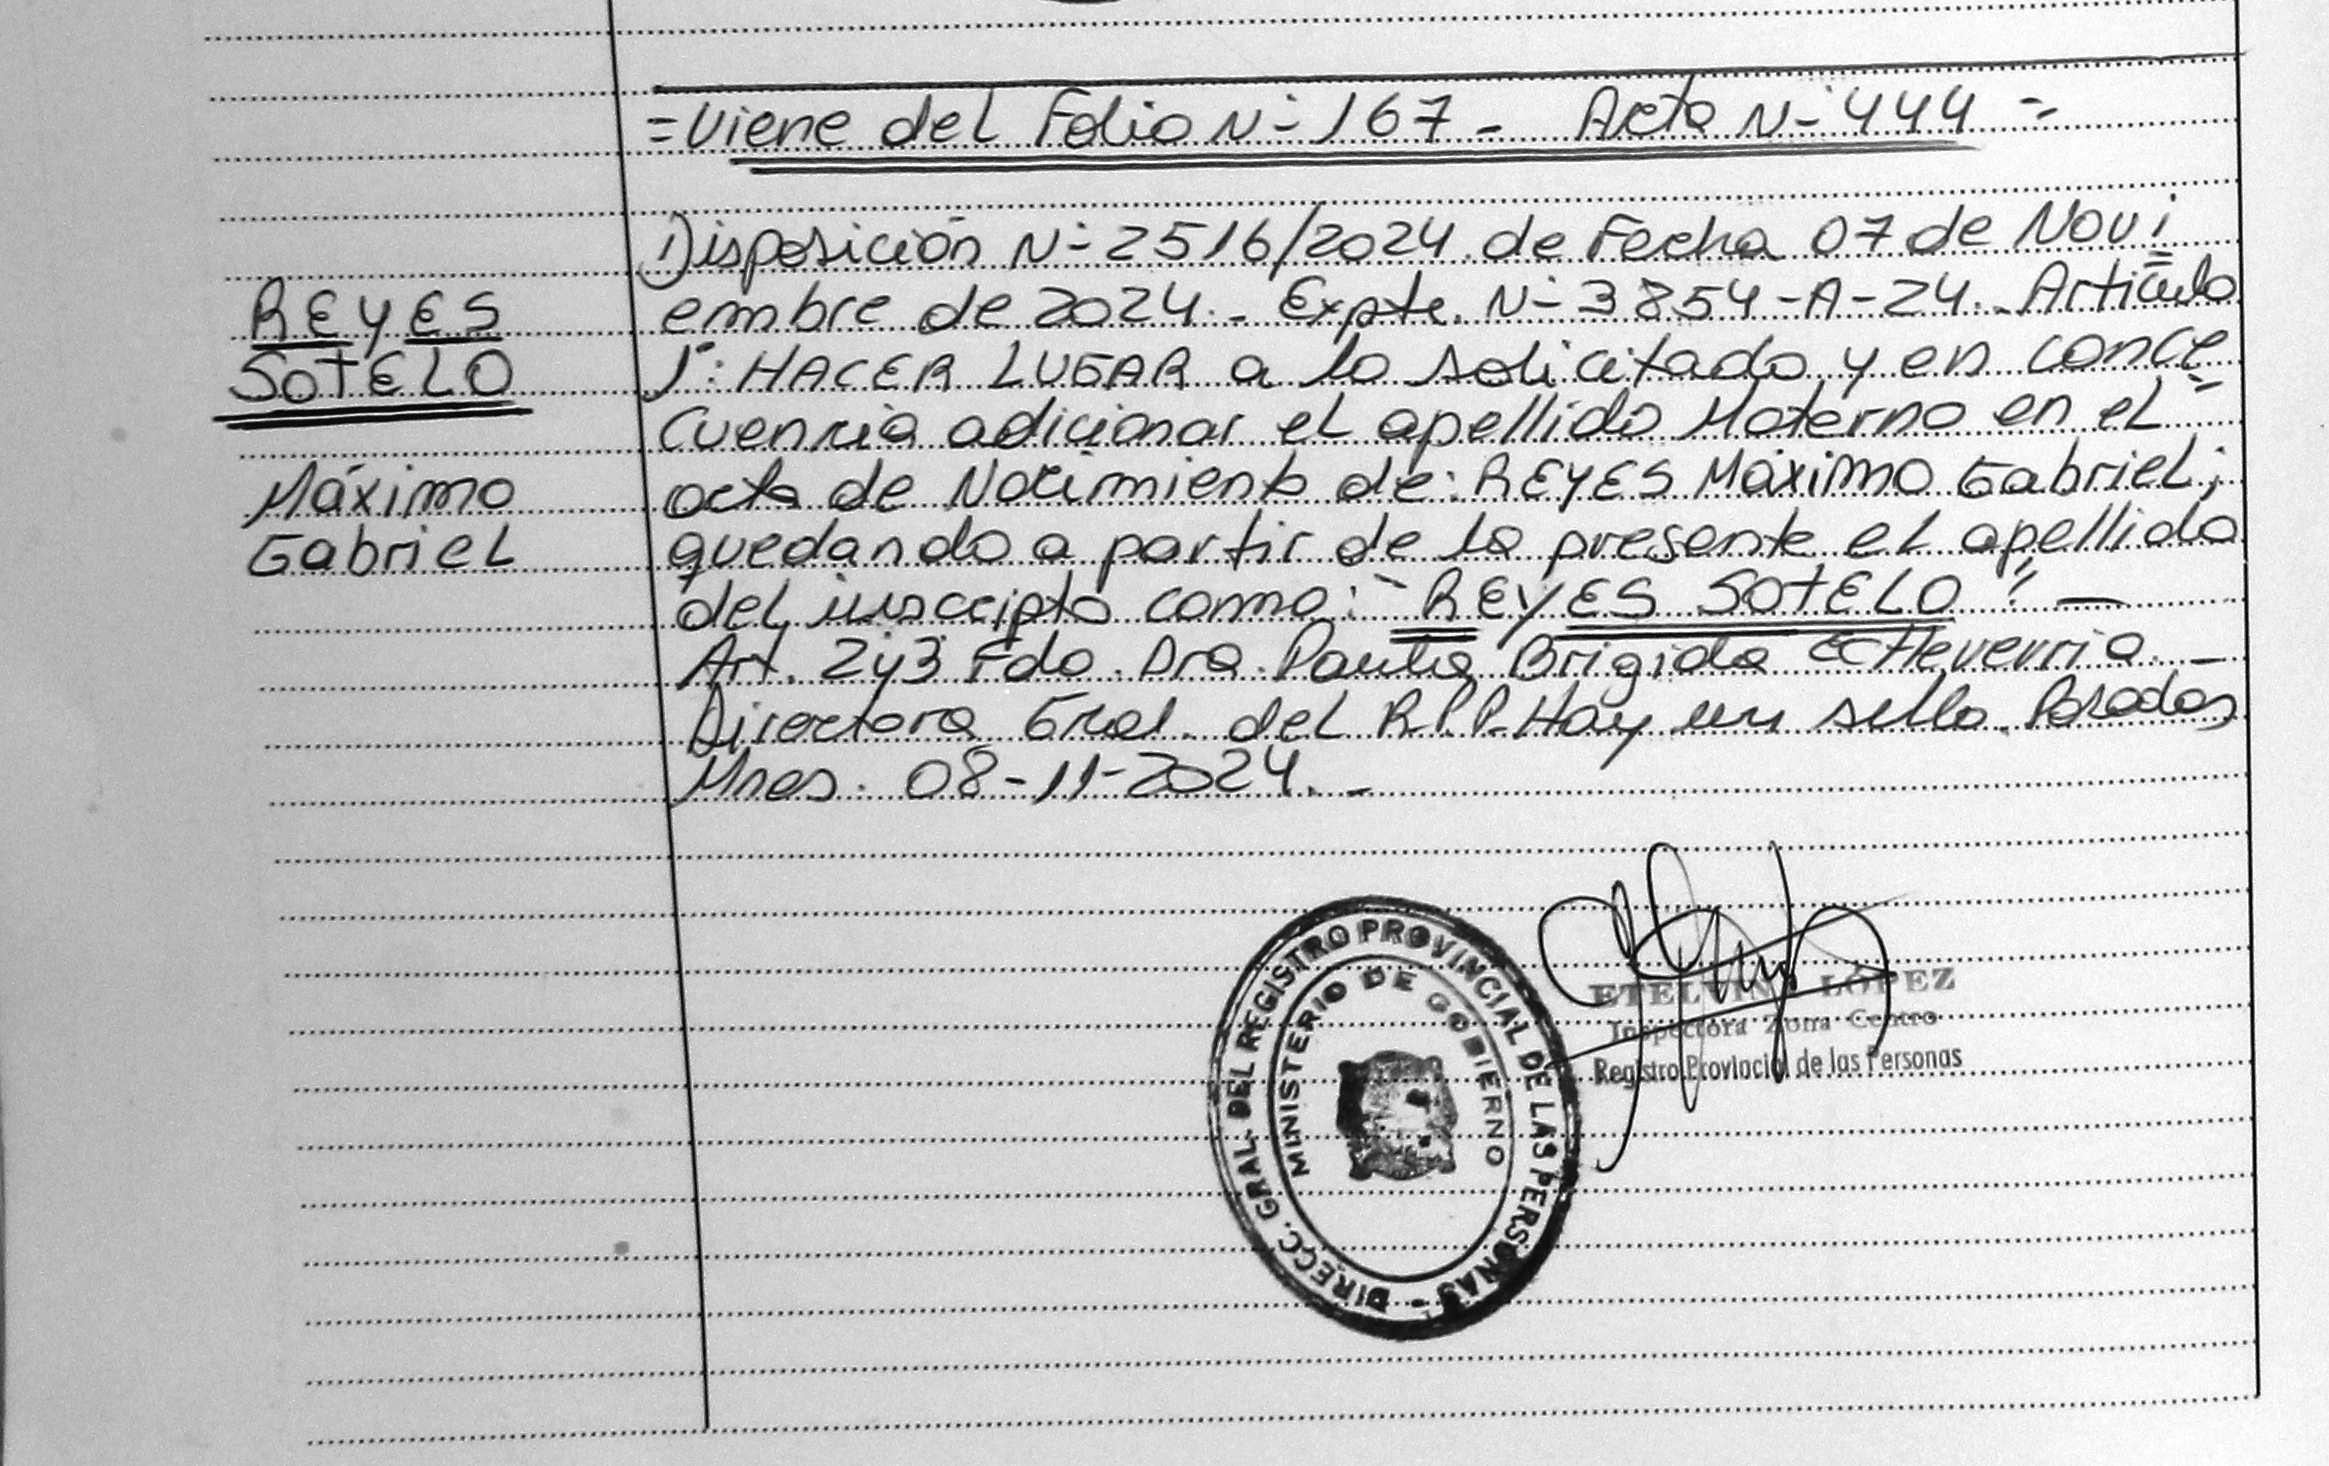 =Viene del Folio N- 167 - Acta N- 444 =
Disposición N- 2516/2024 de Fecha 07 de Novi
embre de 2024.- Expte. N- 3854-A-24.- Artículo
1°: HACER LUGAR a lo solicitado y en conce
cuencia adicionar el apellido Materno en el
acta de Nacimiento de: REYES Máximo Gabriel;
quedando a partir de la presente el apellido
del inscripto como: "REYES SOTELO" —
Art. 2y3 Fdo. Dra. Paula Brigida Etcheverria. -
Directora Gral. del R.P.P. Hay un sello. Posadas
Mnes. 08-11-2024. -
REYES
SOTELO
Máximo
Gabriel
DIRECC. GRAL. DEL REGISTRO PROVINCIAL DE LAS PERSONAS -
MINISTERIO DE GOBIERNO
LÓPEZ
Inspectora Zona Centro
Registro Provincial de las Personas